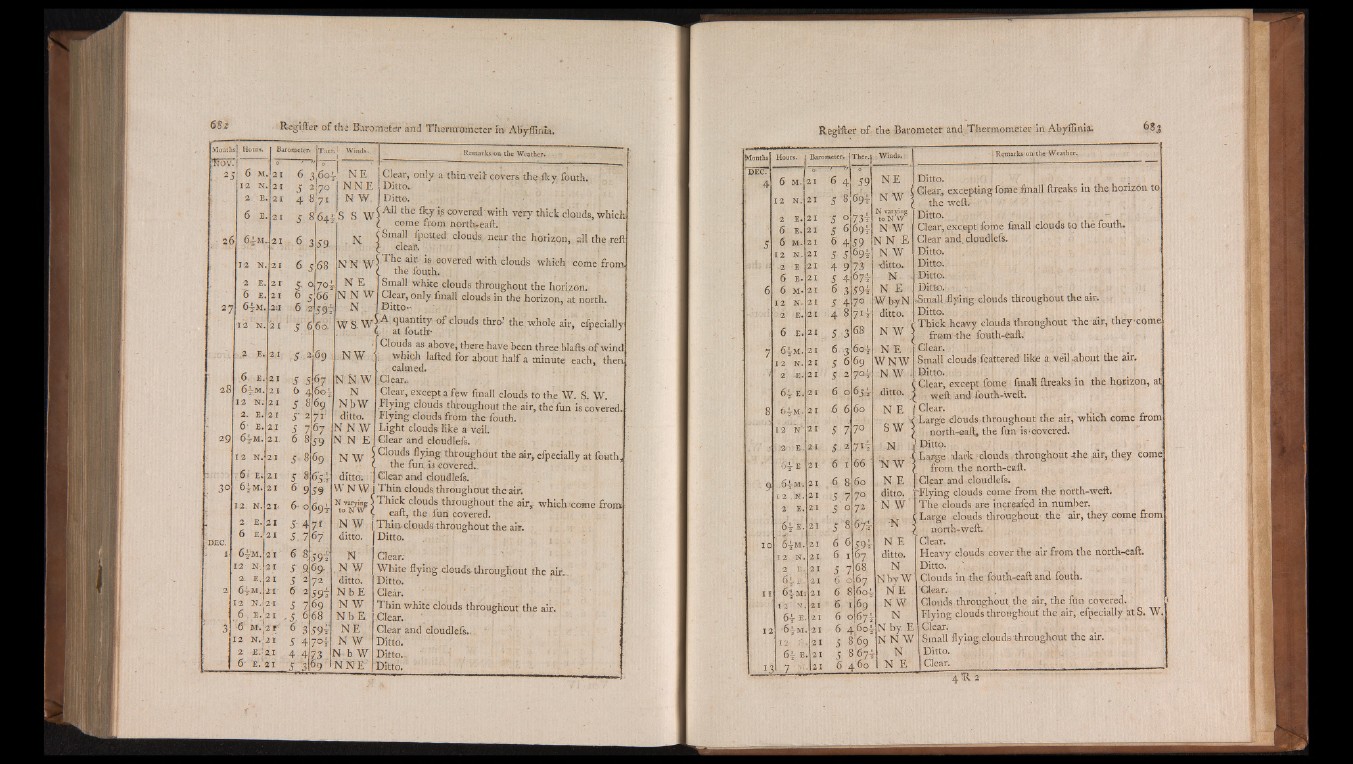 682 Regiſter of the Barometer and Thermometer in Abyſſinia.
Months Hours. Barometer. Ther. Winds. Remarks on the Weather.
NOV. ° ′ ″ °
25 6 M. 21 6 3 60½ N E Clear, only a thin veil covers the ſky ſouth.
12 N. 21 5 2 70 N N E Ditto.
2 E. 21 4 8 71 N W. Ditto.
6 E. 21 5 8 64½ S S W All the ſky is covered with very thick clouds, which
come from north-eaſt.
26 6½ M. 21 6 3 59 N Small ſpotted clouds near the horizon, all the reſt
clear.
12 N. 21 6 5 68 N N W The air is covered with clouds which come from
the ſouth.
2 E. 21 5 0 70½ N E Small white clouds throughout the horizon.
6 E. 21 6 5 66 N N W Clear, only ſmall clouds in the horizon, at north.
27 6½ M. 21 6 2 59½ N Ditto.
12 N. 21 5 6 60 W S W A quantity of clouds thro' the whole air, eſpecially
at ſouth.
2 E. 21 5 2 69 N W Clouds as above, there have been three blaſts of wind
which laſted for about half a minute each, then
calmed.
6 E. 21 5 5 67 N N W Clear.
28 6½ M. 21 6 4 60½ N Clear, except a few ſmall clouds to the W. S. W.
12 N. 21 5 8 69 N b W Flying clouds throughout the air, the ſun is covered.
2. E. 21 5 2 71 ditto. Flying clouds from the ſouth.
6 E. 21 5 7 67 N N W Light clouds like a veil.
29 6½ M. 21 6 8 59 N N E Clear and cloudleſs.
12 N. 21 5 8 69 N W Clouds flying throughout the air, eſpecially at ſouth,
the ſun is covered.
6 E. 21 5 8 65½ ditto. Clear and cloudleſs.
30 6½ M. 21 6 9 59 W N W Thin clouds throughout the air.
12 N. 21 6 0 69½ N varying to N W Thick clouds throughout the air, which come from
eaſt, the ſun covered.
2 E. 21 5 4 71 N W Thin clouds throughout the air.
6 E. 21 5 7 67 ditto. Ditto.
DEC.
1 6½ M. 21 6 8 59½ N Clear.
12 N. 21 5 9 69 N W White flying clouds throughout the air.
2 E. 21 5 2 72 ditto. Ditto.
2 6½ M. 21 6 2 59½ N b E Clear.
12 N. 21 5 7 69 N W Thin white clouds throughout the air.
6 E. 21 5 6 68 N b E Clear.
3 6 M. 21 6 3 59½ N E Clear and cloudleſs.
12 N. 21 5 4 70½ N W Ditto.
2 E. 21 4 4 73 N b W Ditto.
6 E. 21 5 3 69 N N E Ditto.
Regiſter of the Barometer and Thermometer in Abyſſinia. 683
Months Hours. Barometer. Ther. Winds. Remarks on the Weather.
DEC. ° ′ ″ °
4 6 M. 21 6 4 59 N E Ditto.
12 N. 21 5 8 69½ N W Clear, excepting ſome ſmall ſtreaks in the horizon to
the weſt.
2 E. 21 5 0 73½ N varying to N W Ditto.
6 E. 21 5 6 69½ N W Clear, except ſome ſmall clouds to the ſouth.
5 6 M. 21 6 4 59 N N E Clear and cloudleſs.
12 N. 21 5 5 69½ N W Ditto.
2 E 21 4 9 73 ditto. Ditto.
6 E. 21 5 4 67½ N Ditto.
6 6 M. 21 6 3 59½ N E Ditto.
12 N. 21 5 4 70 W by N Small flying clouds throughout the air.
2 E. 21 4 8 71½ ditto. Ditto.
6 E. 21 5 3 68 N W Thick heavy clouds throughout the air, they come
from the ſouth-eaſt.
7 6½ M. 21 6 3 60½ N E Clear.
12 N. 21 5 6 69 W N W Small clouds ſcattered like a veil about the air.
2 E. 21 5 2 70½ N W Ditto.
6½ E. 21 6 0 65½ ditto. Clear, except ſome ſmall ſtreaks in the horizon, at
weſt and ſouth-weſt.
8 6½ M. 21 6 6 60 N E Clear.
12 N 21 5 7 70 S W Large clouds throughout the air, which come from
north-eaſt, the ſun is covered.
2 E. 21 5 2 71½ N Ditto.
6½ E 21 6 1 66 N W Large dark clouds throughout the air, they come
from the north-eaſt.
9 6½ M. 21 6 8 60 N E Clear and cloudleſs.
12 N. 21 5 7 70 ditto. Flying clouds come from the north-weſt.
2 E. 21 5 0 72 N W The clouds are increaſed in number.
6½ E. 21 5 8 67½ N Large clouds throughout the air, they come from
north-weſt.
10 6½ M. 21 6 6 59½ N E Clear.
12 N. 21 6 1 67 ditto. Heavy clouds cover the air from the north-eaſt.
2 E. 21 5 7 68 N Ditto.
6½ E. 21 6 0 67 N by W Clouds in the ſouth-eaſt and ſouth.
11 6½ M. 21 6 8 60½ N E Clear.
12 N. 21 6 1 69 N W Clouds throughout the air, the ſun covered.
6½ E. 21 6 0 67½ N Flying clouds throughout the air, eſpecially at S. W.
12 6½ M. 21 6 4 60½ N by E Clear.
12 N. 21 5 8 69 N N W Small flying clouds throughout the air.
6½ E. 21 5 8 67½ N Ditto.
13 7 21 6 4 60 N E Clear.
4 R 2